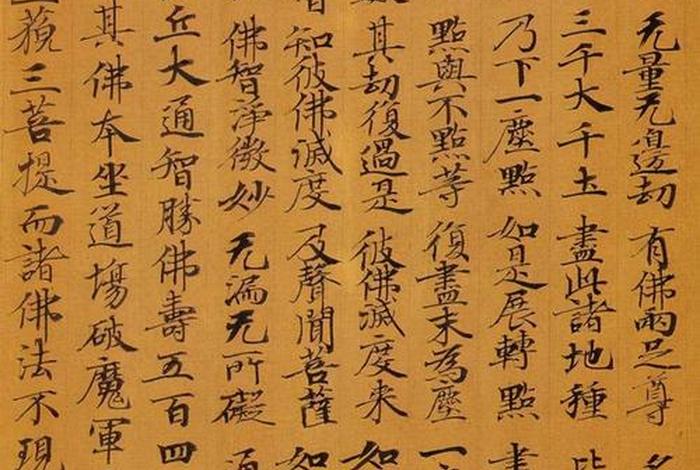 无量无邊劫 有佛兩足尊
三千大千土 盡此諸地種
乃下一塵點 如是展轉點
點與不點等 復盡末為塵 一
其劫復過是 彼佛滅度来 如
知彼佛滅度 及聲聞菩薩 如
佛智淨微妙 无漏无所礙
丘大通智勝佛壽五百四
其佛本坐道場破魔軍
藐三菩提而諸佛法不現